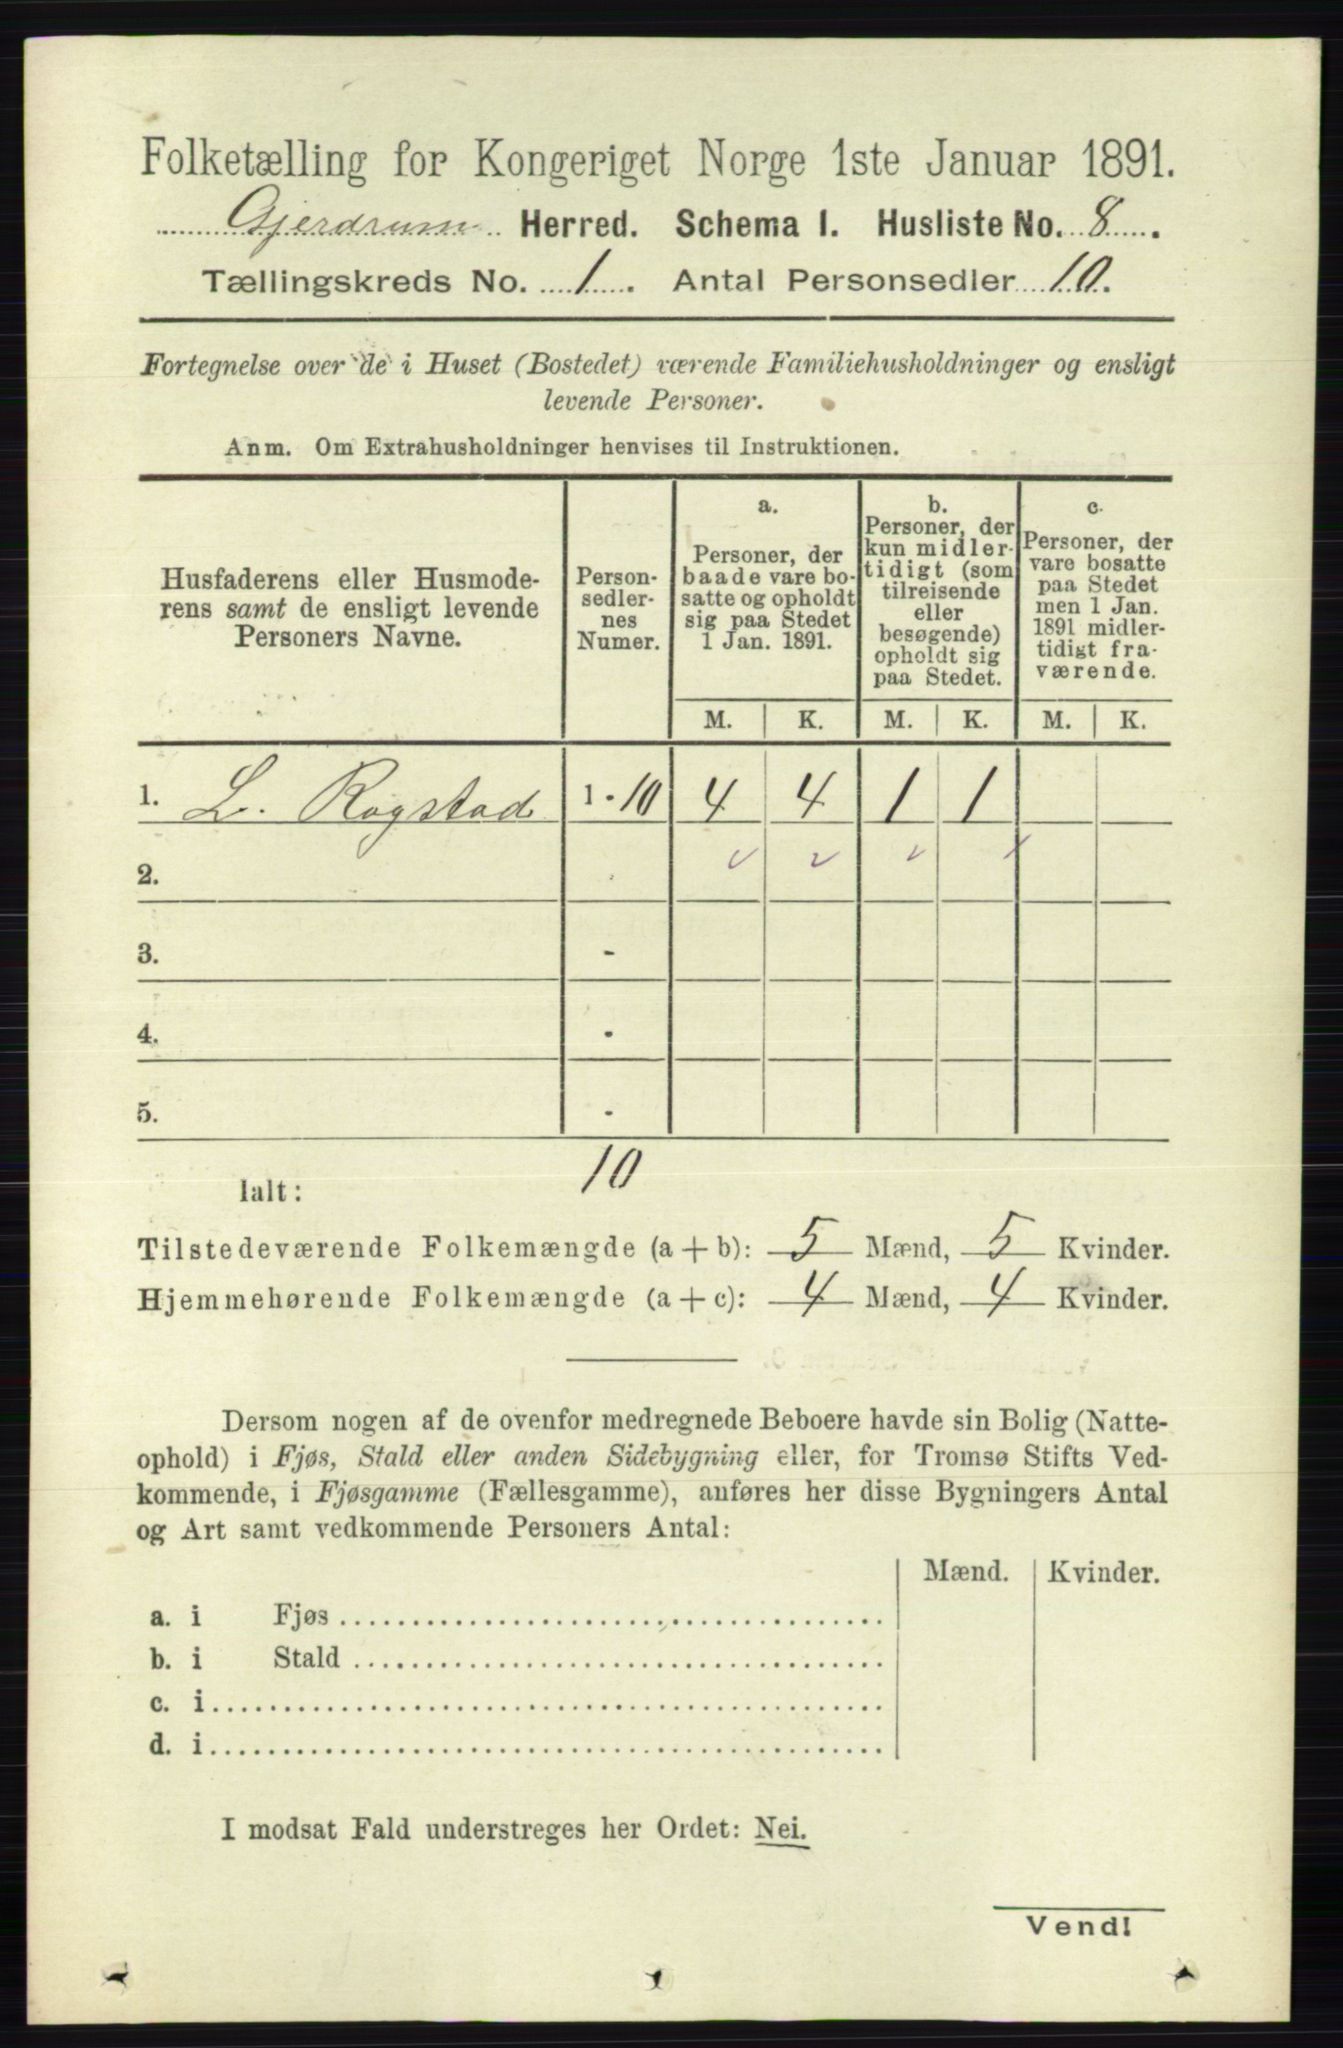 Folketælling for Kongeriget Norge 1ste Januar 1891.
Gjerdrum Herred. Schema I. Husliste No. 8.
Tællingskreds No. 1. Antal Personsedler 10.
Fortegnelse over de i Huset (Bostedet) værende Familiehusholdninger og ensligt
levende Personer.
Anm. Om Extrahusholdninger henvises til Instruktionen.
Husfaderens eller Husmode-
rens samt de ensligt levende
Personers Navne.
Person-
sedler-
nes
Numer.
a.
Personer, der
baade vare bo-
satte og opholdt
sig paa Stedet
1 Jan. 1891.
b.
Personer, der
kun midler-
tidigt (som
tilreisende
eller
besøgende)
opholdt sig
paa Stedet.
c.
Personer, der
vare bosatte
paa Stedet
men 1 Jan.
1891 midler-
tidigt fra-
værende.
M. K. M. K. M. K.
1. L. Rogstad 1 - 10 4 4 1 1
2.
3. -
4. -
5. -
10
Ialt:
Tilstedeværende Folkemængde (a + b): 5 Mænd, 5 Kvinder.
Hjemmehørende Folkemængde (a + c): 4 Mænd, 4 Kvinder.
Dersom nogen af de ovenfor medregnede Beboere havde sin Bolig (Natte-
ophold) i Fjøs, Stald eller anden Sidebygning eller, for Tromsø Stifts Ved-
kommende, i Fjøsgamme (Fællesgamme), anføres her disse Bygningers Antal
og Art samt vedkommende Personers Antal:
Mænd. Kvinder.
a. i Fjøs
b. i Stald
c. i
d. i
I modsat Fald understreges her Ordet: Nei.
Vend!